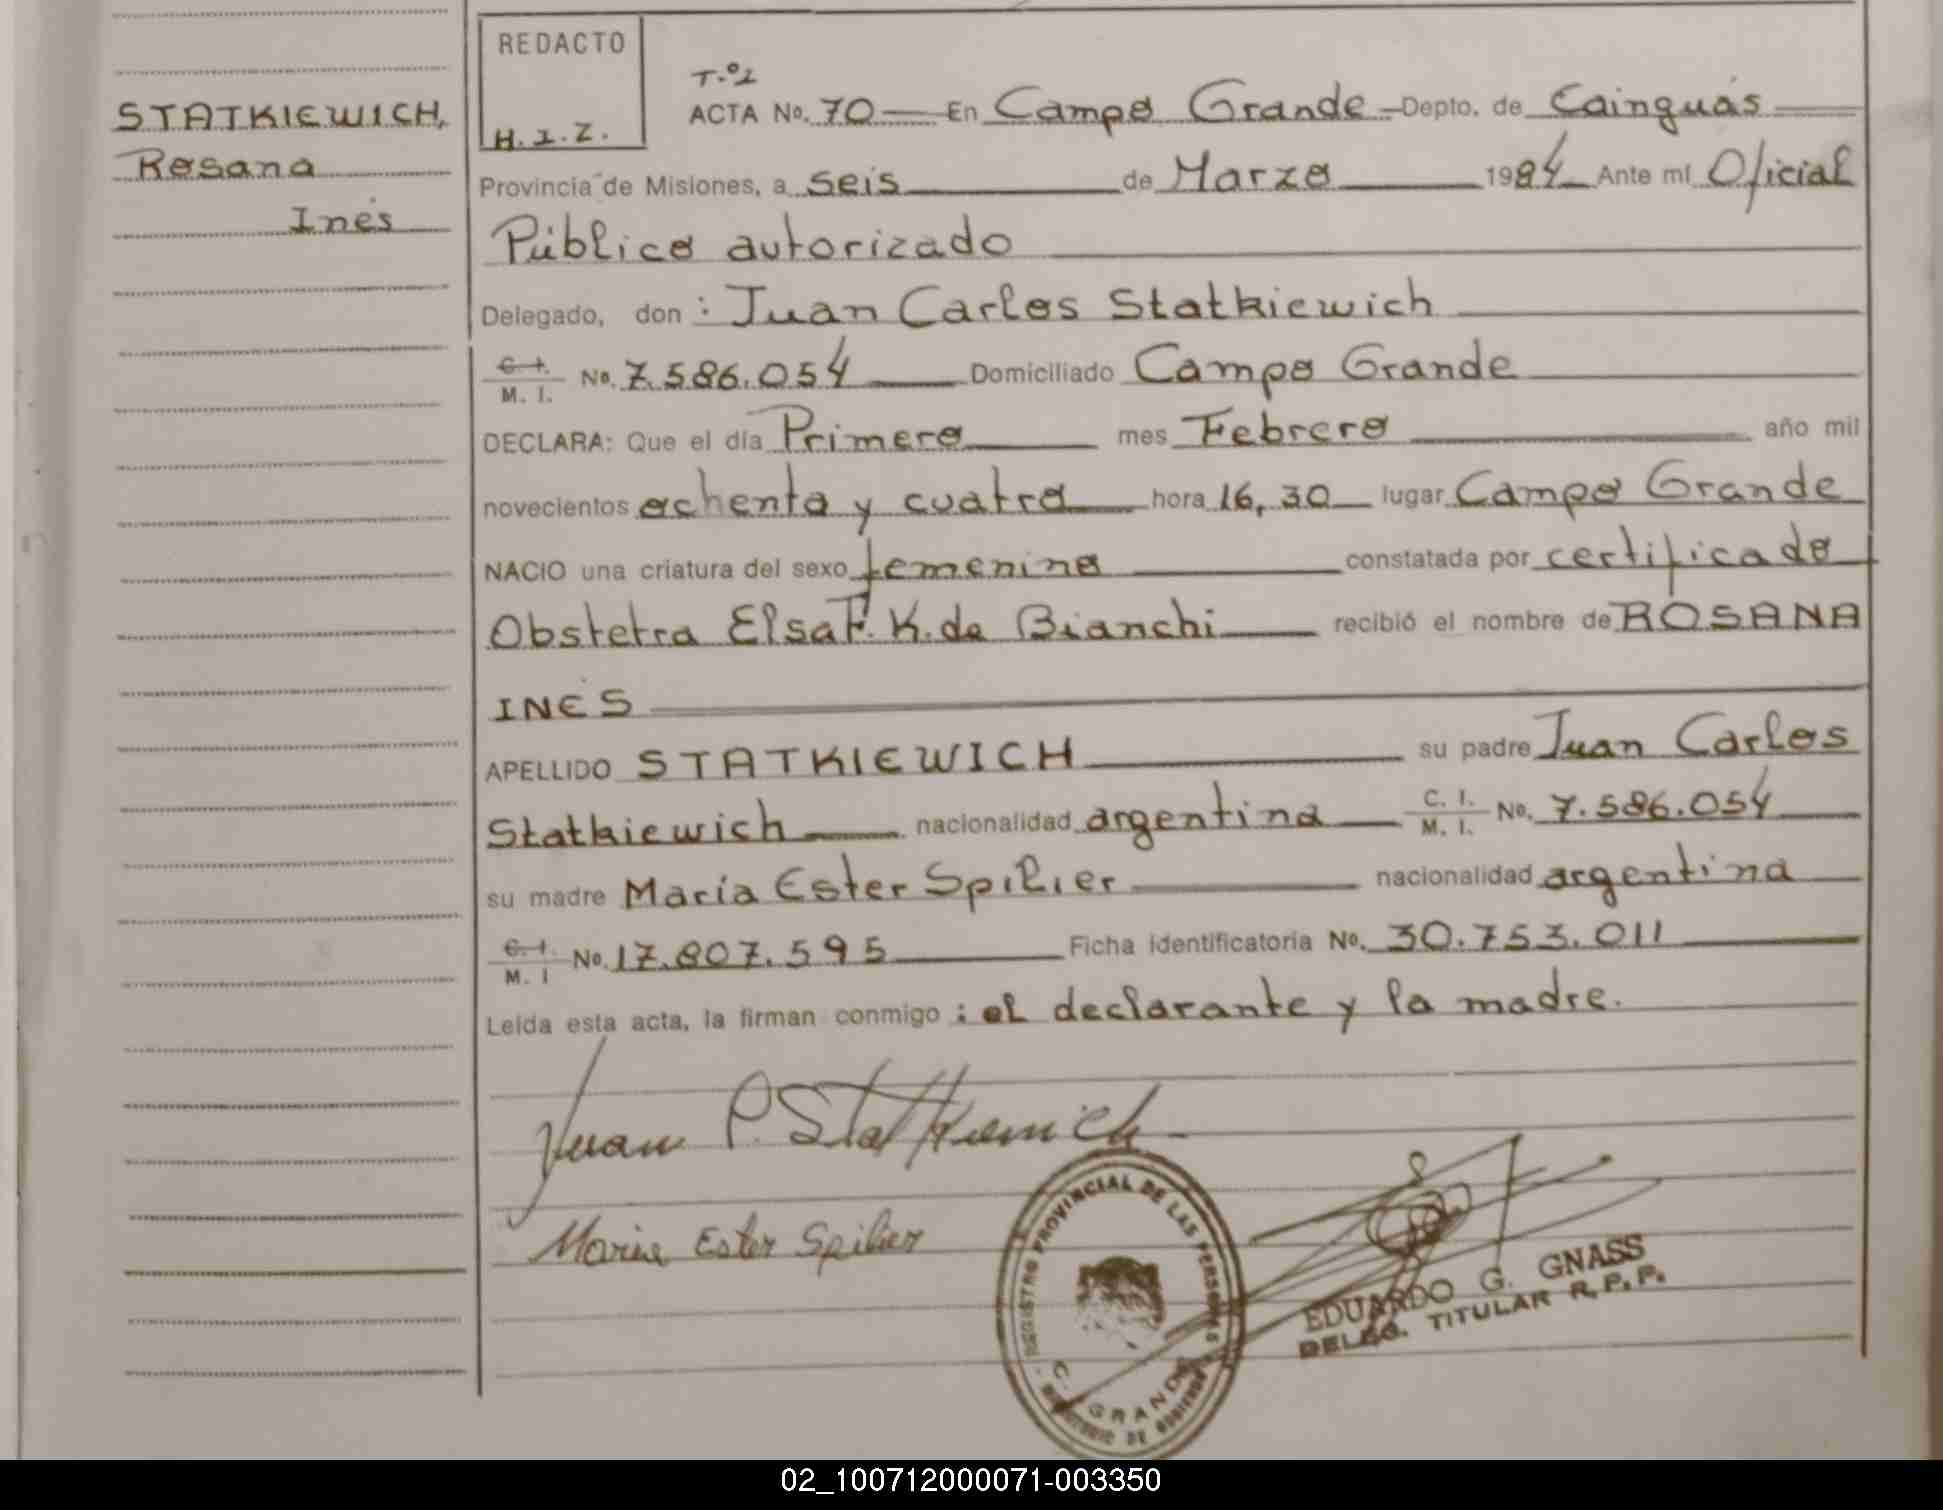 STATKIEWICH,
Rosana
Inés
REDACTO
H.I.Z.
T.º1
ACTA No. 70 En Campo Grande Depto. de Cainguás
Provincia de Misiones, a seis de Marzo 1984 Ante mí Oficial
Público autorizado
Delegado, don : Juan Carlos Statkiewich
C.I. M. I. No. 7.586.054 Domiciliado Campo Grande
DECLARA: Que el día Primero mes Febrero año mil
novecientos ochenta y cuatro hora 16,30 lugar Campo Grande
NACIO una criatura del sexo femenino constatada por certificado
Obstetra Elsa F. K. de Bianchi recibió el nombre de ROSANA
INÉS
APELLIDO STATKIEWICH su padre Juan Carlos
Statkiewich nacionalidad argentina C. I. M. I. No. 7.586.054
su madre María Ester Spilier nacionalidad argentina
C.I. M. I No. 17.807.595 Ficha identificatoria No. 30.753.011
Leída esta acta, la firman conmigo : el declarante y la madre.
Juan C. Statkiewich
Maria Ester Spilier
REGISTRO PROVINCIAL DE LAS PERSONAS
C. GRANDE
MINISTERIO DE GOBIERNO
EDUARDO G. GNASS
DELEG. TITULAR R.P.P.
02_100712000071-003350